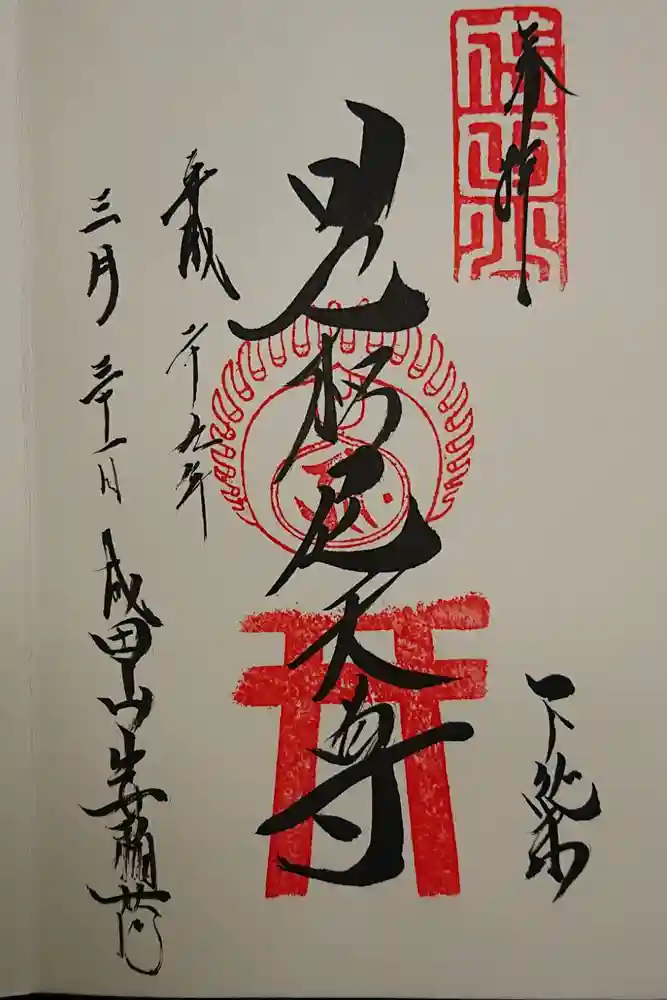 奉拝
成田山
下総
枳尼天尊
平成二十九年
三月三十一日 成田山出世稲荷